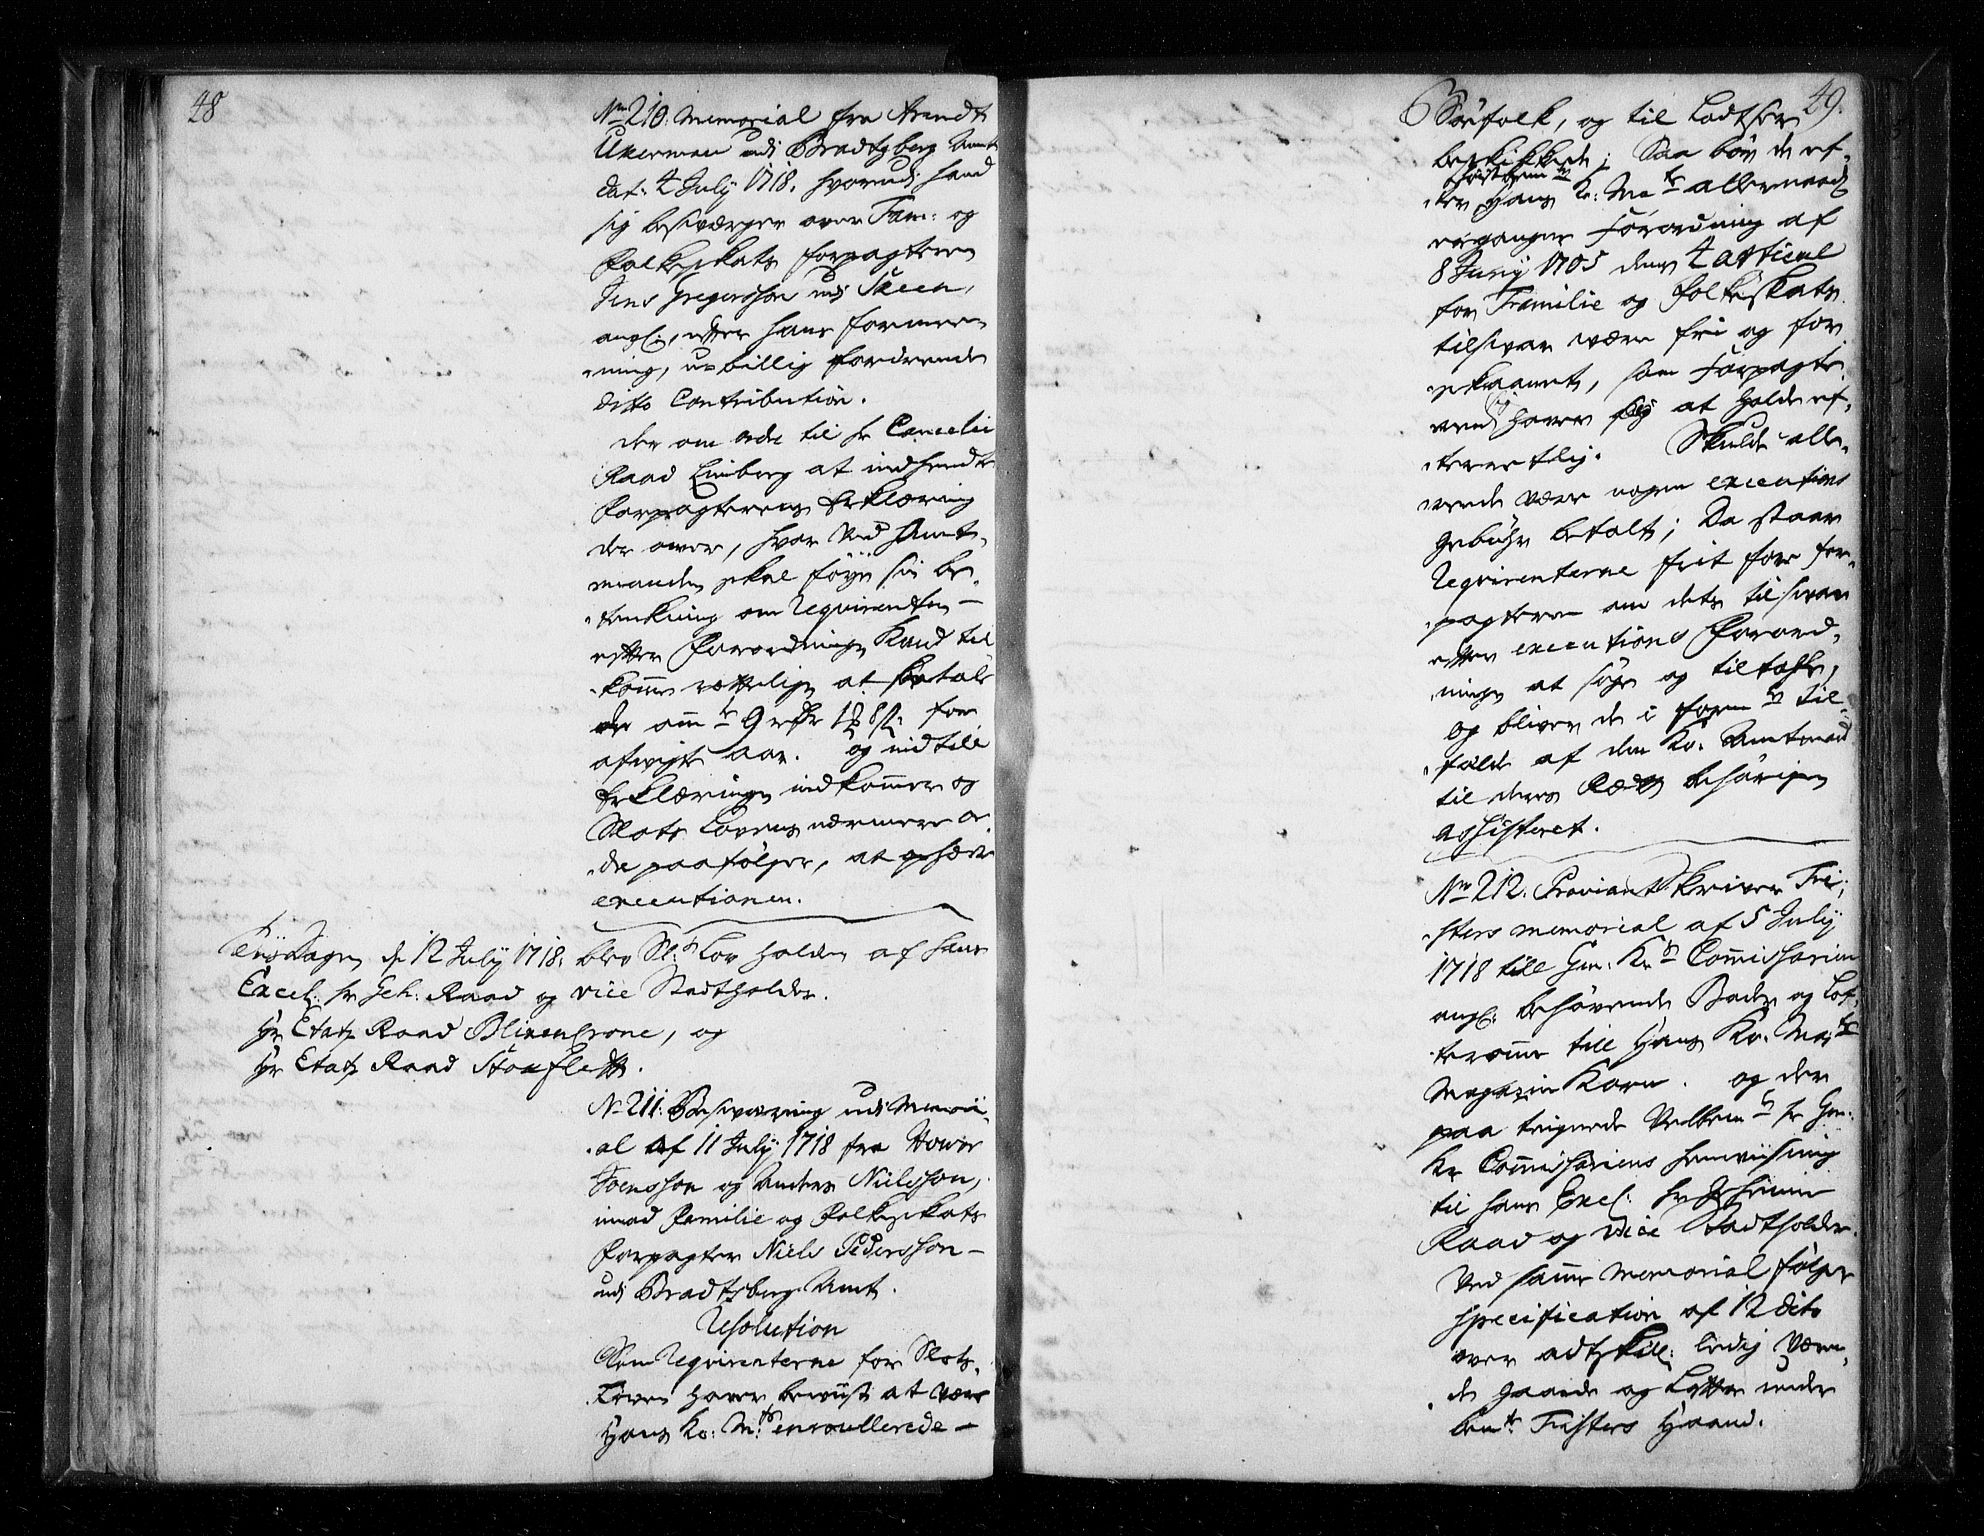 48
No 210. Memorial fra Arendt
Ukerman udi Bradtzberg Amt
dat: 4 July 1718. hvorudi hand
sig besværger over Fam: og
Folkeskats forpagteren
Jens Gregersson udi Skeen,
ang: efter hans formee-
ning, u-billig fordrende
ditto Contribution.
der om ordre til hr Cancelie
Raad Einberg at indhendte
Forpagterens Erklæring
der over, hvor ved Amt-
manden skal føye sin be-
tenkning om Reqvirenten
efter Forordningen kand til
komme rettelig at betale
de 9 rdr for
afvigte aar. og indtill
Erklæringen indkommer og
Slots Lovens nærmere or-
dre paafølger, at ophæve
executionen.
Tiisdagen d: 12 July 1718. blev Sl: Lov holden af hans
Excel: hr Geh: Raad og vice Stadtholder.
Hr Etatz Raad Blixencrone, og
Hr Etatz Raad Stoufle.
No 211. Besværing udi Memori-
al af 11 July 1718 fra Hover
Svensson og Anders Nielsson,
imod Familie og Folkeskats
Forpagter Niels Pedersson
udi Bradtsberg Amt.
Resolution
Som Reqvirenterne for Slots-
Loven haver beviist at være
Hans Ko: Ms enroullerede
49.
Søefolk, og til Lodtser
beskikkede; Saa bør de ef-
ter Hans K: Mats allernaad
ergangne Forordning af
8 Junij 1705 dens 4 articul
for Familie og folkeskats
tilsvar være fri og for
skaanet, som Forpagte-
ren haver sig at holde ef-
terrettlig. Skulde alle-
rede være nogen executions
Gebühr betalt; Da staar
Reqvirenterne frit for for-
pagteren om dets tilsvar
efter executions Forord-
ningen at søge og tiltale,
og bliver de i form til-
fælde af den Ko: Amtmand
til deres Rætt behørigen
assisteret.
No 212. Proviantskriver Fri-
sters memorial af 5 July
1718 till Gen: Kr Commissarien
ang: behøvende Boder og Lof-
terome till Hans Ko: Mayts
Magazin Korn. og der
paa teignede Velbem hr Gen:
Kr Commissariens henviisning
til hans Excel: hr Geheime
Raad og vice Stadtholder.
Ved samme memorial følger
specification af 12 dito
over adskill: ledig være-
de gaarde og Loffter under
bemte Fristers Haand.